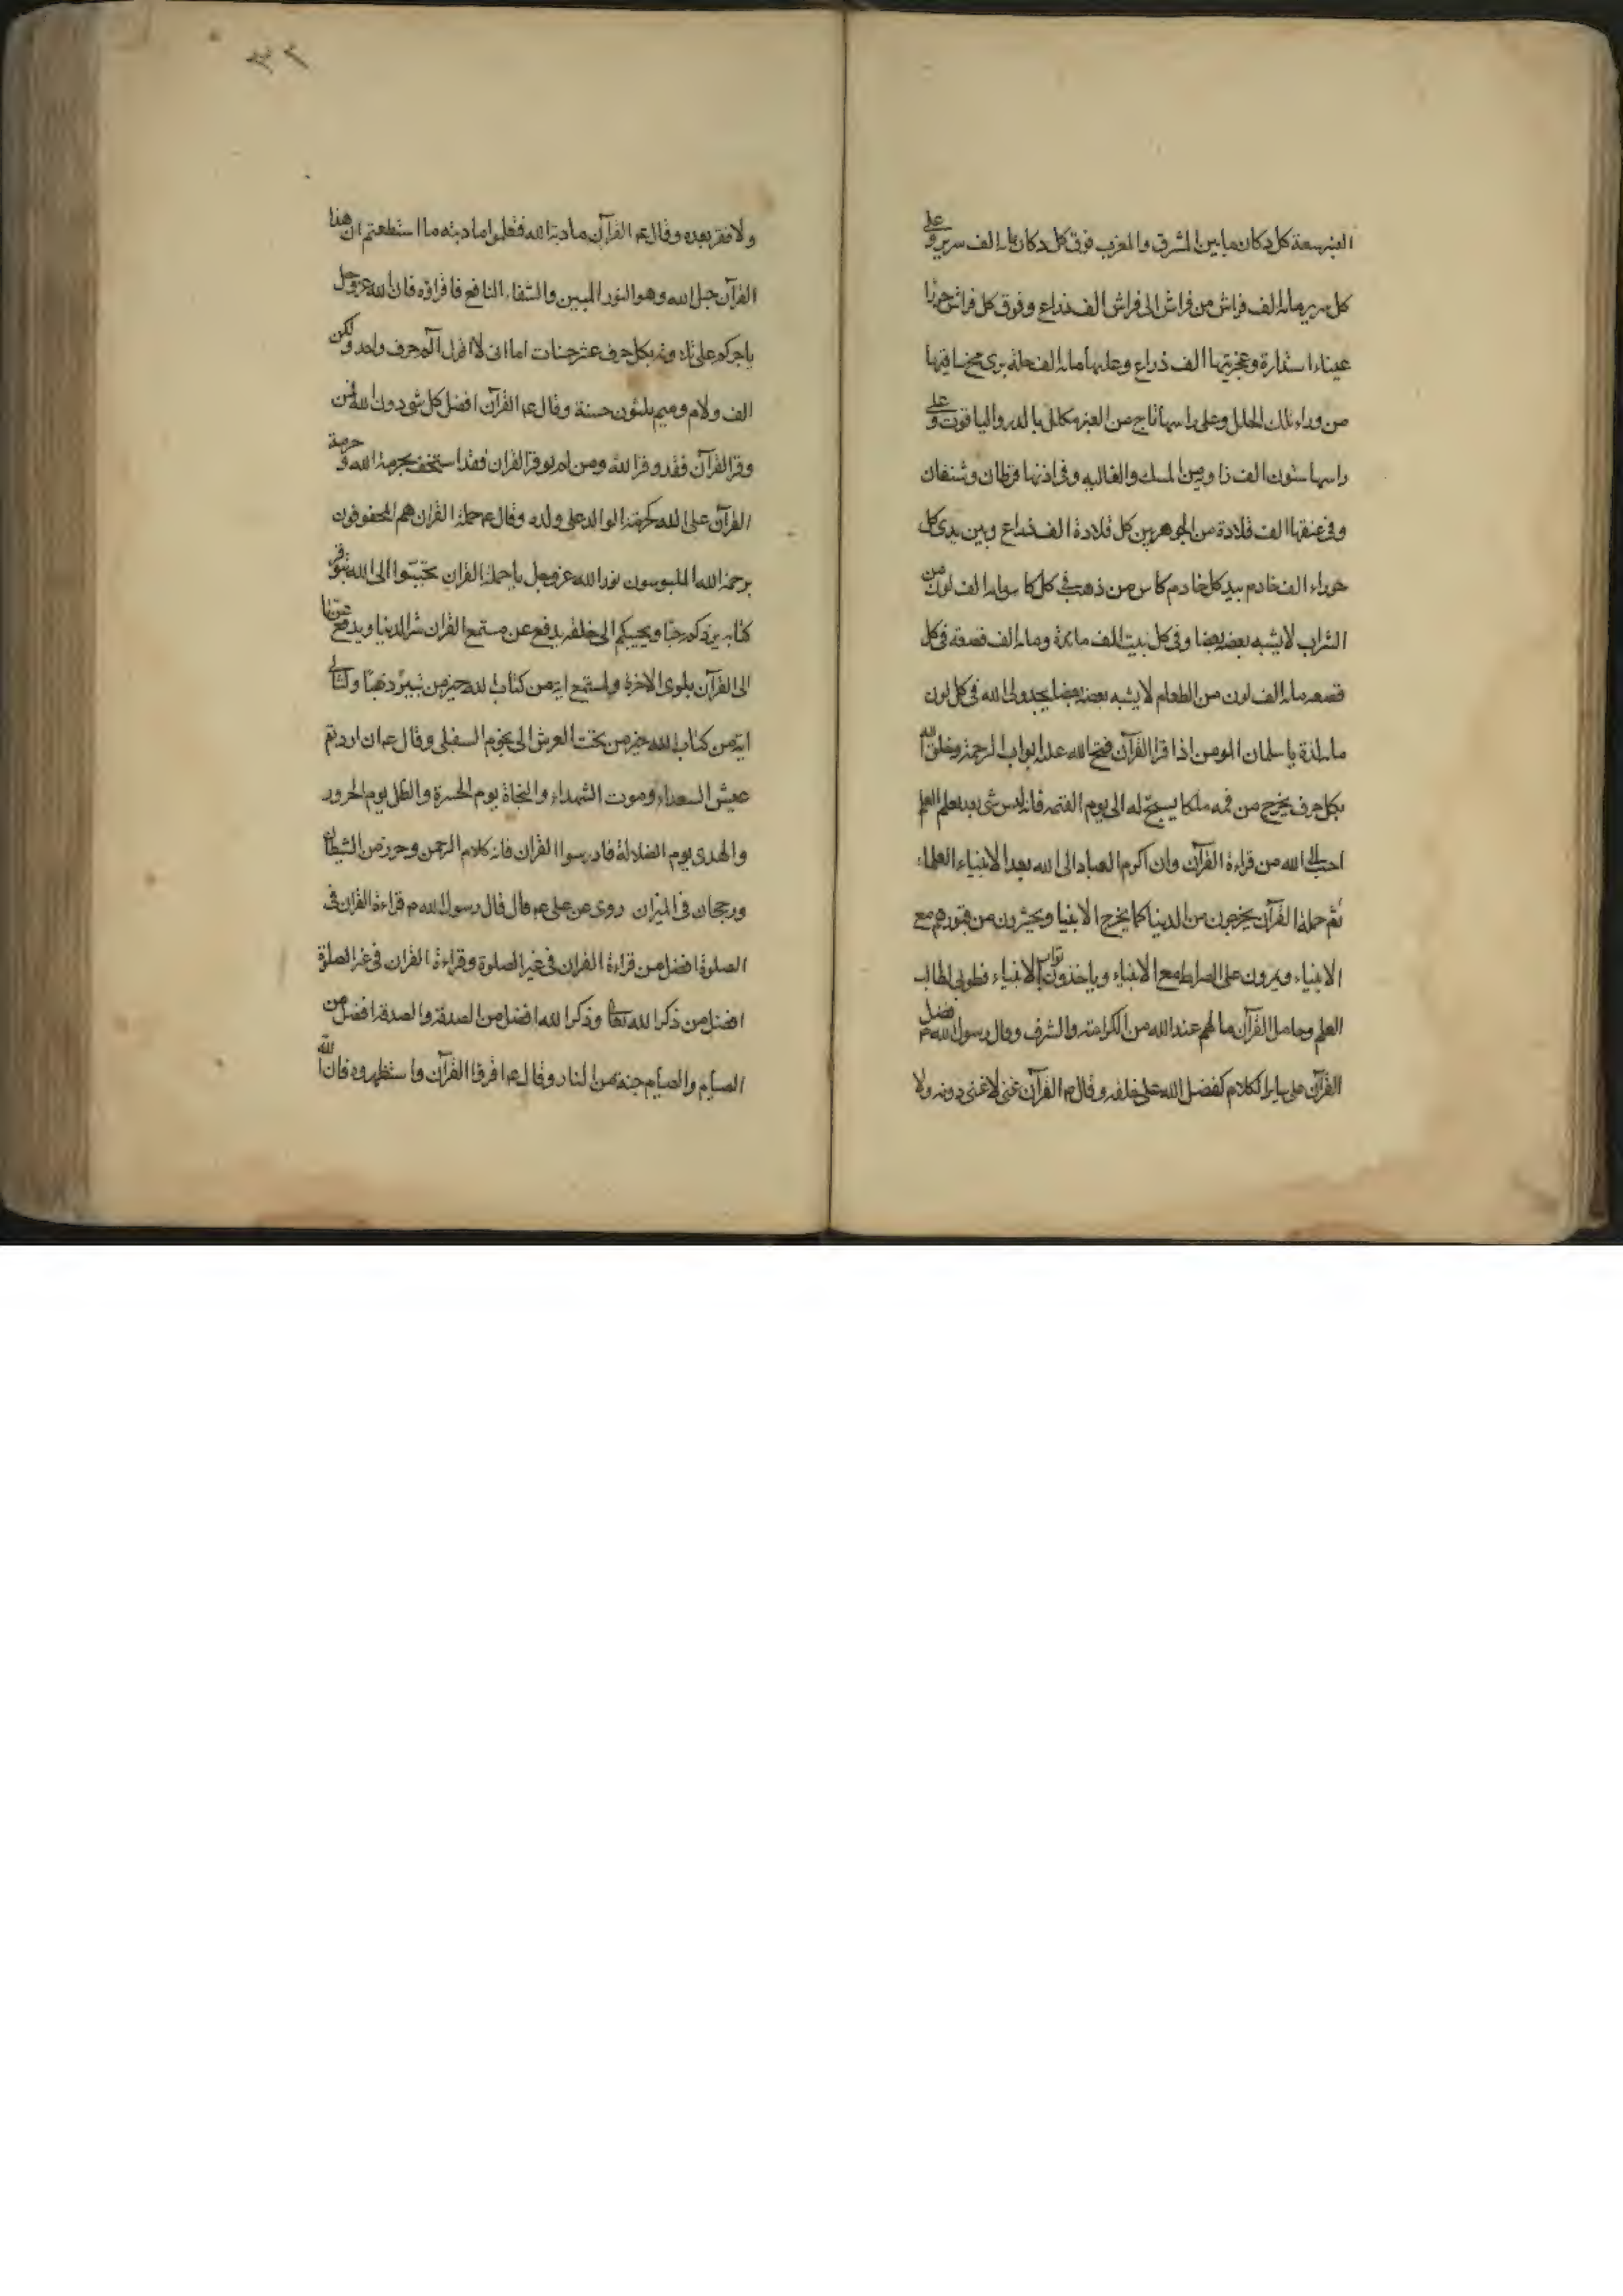 العنبر سعة كل دكان ما بين المشرق والمغرب فوق كل دكان ماية الف سرير وعلى
كل سرير ماية الف فراش من فراش الى فراش الف ذراع وفوق كل فراش حورا
عيناء استدارة وعجزيتها الف ذراع وعليها ماية الف حلة يرى مخ ساقيها
من وراء تلك الحلل وعلى راسها تاج من العنبر مكلل بالدر والياقوت وعلى
راسها ستون الف ذا وبة من المسك والغالية وفى اذنها قرطان وشنفان
وفى عنقها الف قلادة من الجوهر بين كل قلادة الف ذراع وبين يدى كل
حوراء الف خادم بيد كل خادم كاس من ذهب فى كل كاس ماية الف لون من
الشراب لا يشبه بعضه بعضا وفى كل بيت الف مائدة وماية الف قصعة فى كل
قصعة ماية الف لون من الطعام لا يشبه بعضه بعضا يجد ولى الله فى كل لون
ماية لذة يا سلمان المومن اذا قرا القرآن فتح الله عليه ابواب الرحمة وخلق الله
بكل حرف يخرج من فمه ملكا يسبح له الى يوم القيمه فانه ليس شى بعد تعلم العلم
احب الى الله من قراءة القرآن وان اكرم العباد الى الله بعد الانبياء العلماء
ثم حملة القرآن يخرجون من الدنيا كما يخرج الانبيا ويحشرون من قبورهم مع
الانبياء ويمرون على الصراط مع الانبياء وياخذون ثواب الانبياء فطوبى لطالب
العلم وحامل القرآن ما لهم عند الله من الكرامة والشرف وقال رسول الله ص فضل
القرآن على ساير الكلام كفضل الله على خلقه وقال ص القرآن غنى لا غنى دونه ولا
ولا فقر بعده وقال ع القرآن مادبة الله فتعلموا مادبته ما استطعتم ان هذا
القرآن حبل الله وهو النور المبين والشفاء النافع فاقراؤه فان الله عز وجل
ياجركم على تلاوته بكل حرف عشر حسنات اما انى لا اقول آلم حرف واحد ولكن
الف ولام وميم ثلثون حسنة وقال ع القرآن افضل كل شى دون الله فمن
وقر القرآن فقد وقر الله ومن لم يوقر القران فقد استخف بحرمة الله وحرمة
القرآن على الله كحرمة الوالد على ولده وقال ع حملة القران هم المحفوفون
برحمة الله الملبوسون نور الله عز وجل يا حملة القران تحببوا الى الله بتوقير
كتابه يزدكم حبا ويحببكم الى خلقه يدفع عن مستمع القران شر الدنيا ويدفع عن
الى القرآن بلوى الاخرة ولمستمع اية من كتاب الله خير من ثبير ذهبا ولتالى
اية من كتاب الله خير من تحت العرش الى تخوم السفلى وقال ع ان اردتم
عيش السعداء وموت الشهداء والنجاة يوم الحسرة والظل يوم الحرور
والهدى يوم الضلالة فادرسوا القران فانه كلام الرحمن وحرز من الشيطان
ورجحان فى الميزان روى عن على ع قال قال رسول الله ص قراءة القران فى
الصلوة افضل من قراءة القران فى غير الصلوة وقراءة القران فى غير الصلوة
افضل من ذكر الله تعالى وذكر الله افضل من الصدقة والصدقة افضل من
الصيام والصيام جنة من النار وقال ع اقرؤا القرآن واستظهروه فان الله